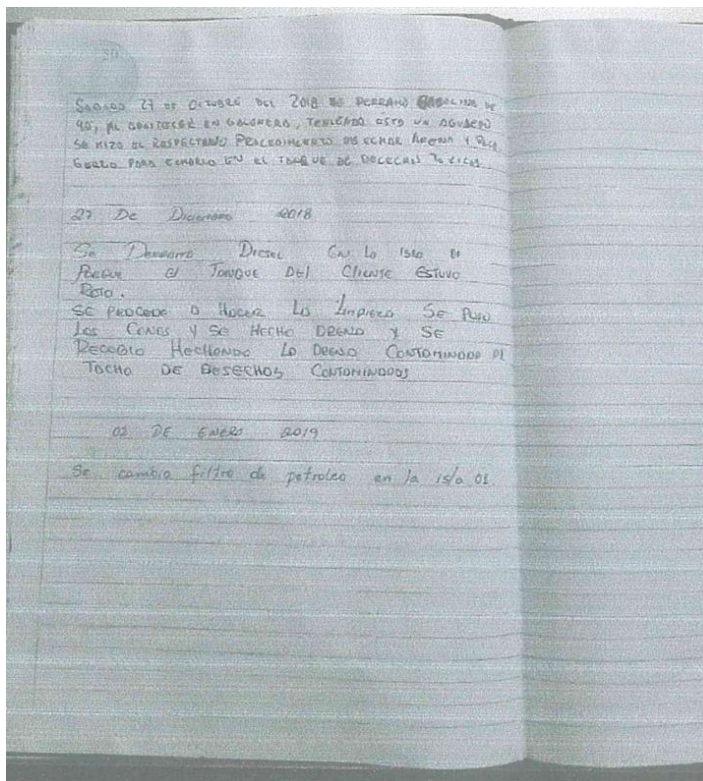 30
Sabado 27 de Octubre del 2018 se derramo Gasolina de
90, al abastecer en galonera, teniendo esto un agujero
se hizo el respectivo Procedimiento de echar Arena y
para echarlo en el tanque de
27 De Diciembre 2018
Se Derramo Diesel en la isla
Porque el Tanque Del Cliente Estuvo
Roto.
SE PROCEDE a Hacer La Limpieza Se Puso
Los Conos y Se Hecho Arena y SE
Recogio Hechando La Arena Contaminada Al
Tacho DE DESECHOS CONTAMINADOS
02 DE ENERO 2019
Se cambio filtro de petroleo en la isla 01